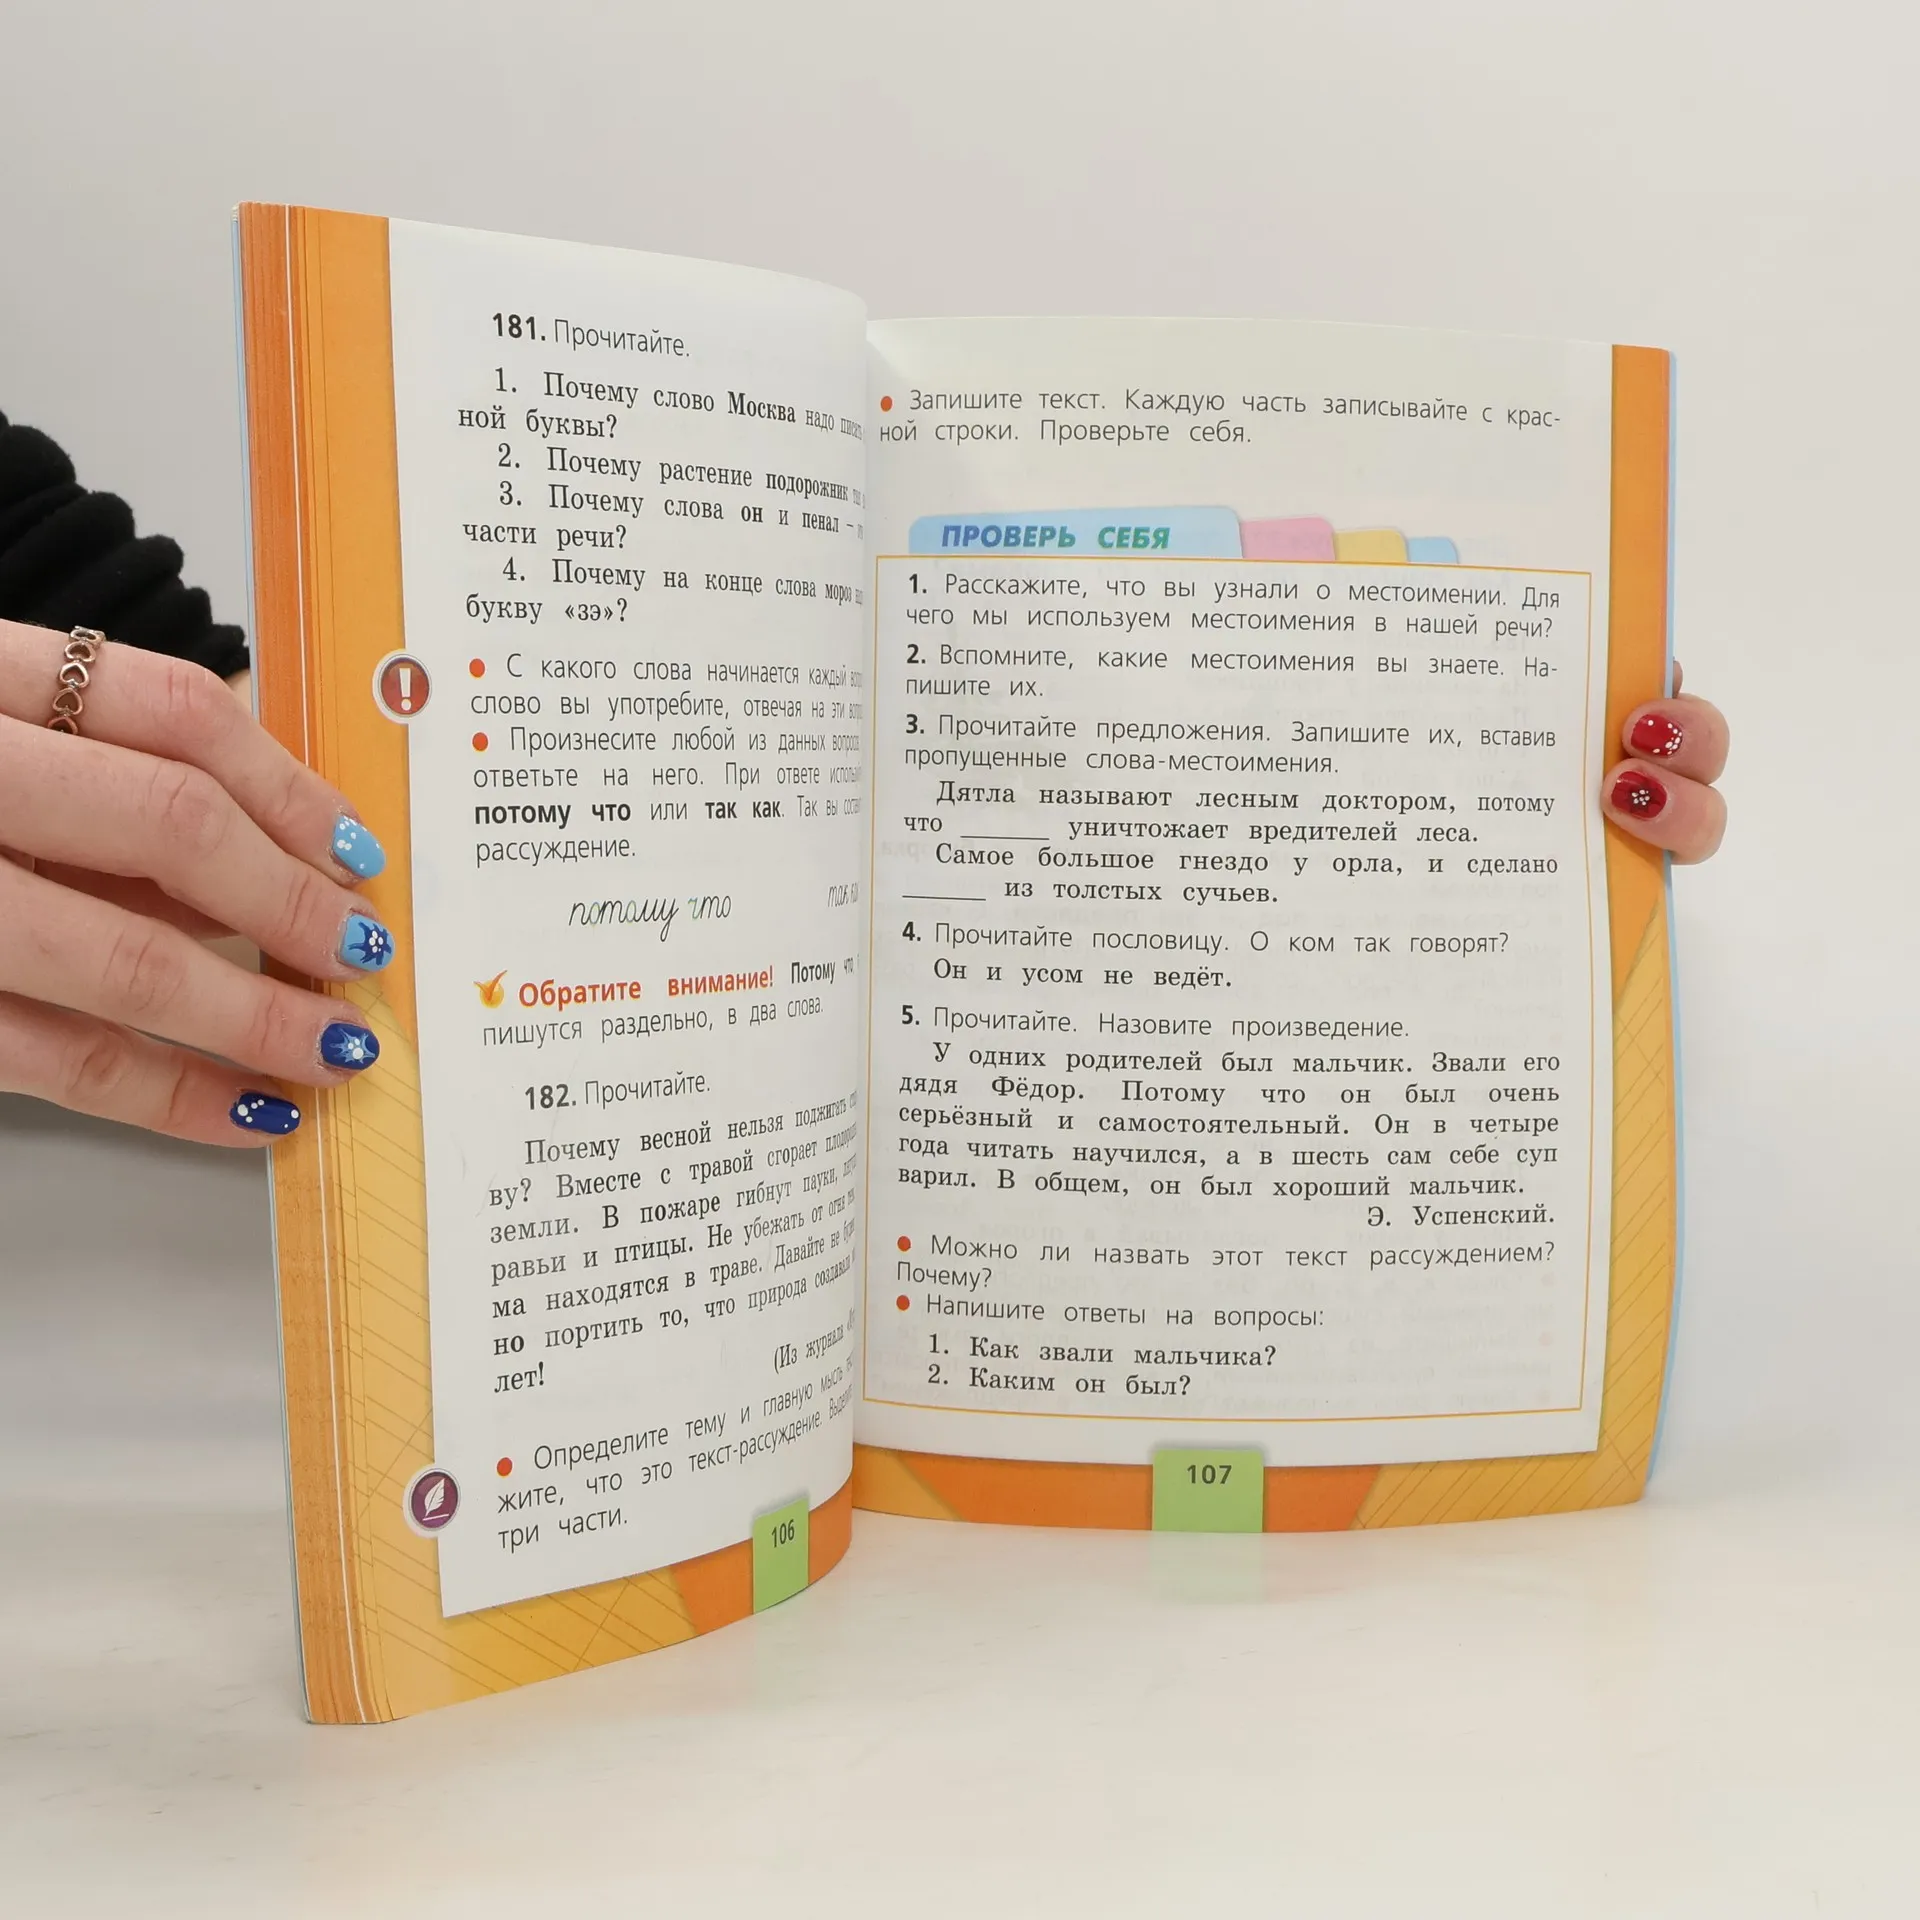 181. Прочитайте.
1. Почему слово Москва надо писать
ной буквы?
2. Почему растение подорожник
3. Почему слова он и пенал –
части речи?
4. Почему на конце слова мороз
букву «зэ»?
С какого слова начинается каждый
слово вы употребите, отвечая на эти
Произнесите любой из данных
ответьте на него. При ответе
потому что или так как. Так вы
рассуждение.
потому что так
Обратите внимание! Потому что
пишутся раздельно, в два слова.
182. Прочитайте.
Почему весной нельзя поджигать
ву? Вместе с травой сгорает
земли. В пожаре гибнут пауки,
равьи и птицы. Не убежать от огня
ма находятся в траве. Давайте не
но портить то, что природа создавала
лет!
(Из журнала
Определите тему и главную мысль
жите, что это текст-рассуждение.
три части.
106
Запишите текст. Каждую часть записывайте с крас-
ной строки. Проверьте себя.
ПРОВЕРЬ СЕБЯ
1. Расскажите, что вы узнали о местоимении. Для
чего мы используем местоимения в нашей речи?
2. Вспомните, какие местоимения вы знаете. На-
пишите их.
3. Прочитайте предложения. Запишите их, вставив
пропущенные слова-местоимения.
Дятла называют лесным доктором, потому
что ______ уничтожает вредителей леса.
Самое большое гнездо у орла, и сделано
______ из толстых сучьев.
4. Прочитайте пословицу. О ком так говорят?
Он и усом не ведёт.
5. Прочитайте. Назовите произведение.
У одних родителей был мальчик. Звали его
дядя Фёдор. Потому что он был очень
серьёзный и самостоятельный. Он в четыре
года читать научился, а в шесть сам себе суп
варил. В общем, он был хороший мальчик.
Э. Успенский.
Можно ли назвать этот текст рассуждением?
Почему?
Напишите ответы на вопросы:
1. Как звали мальчика?
2. Каким он был?
107